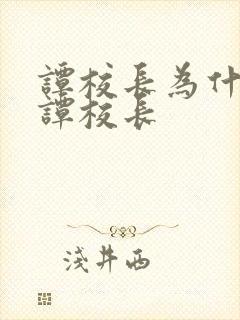 譚校長為什
譚校長
淺井西